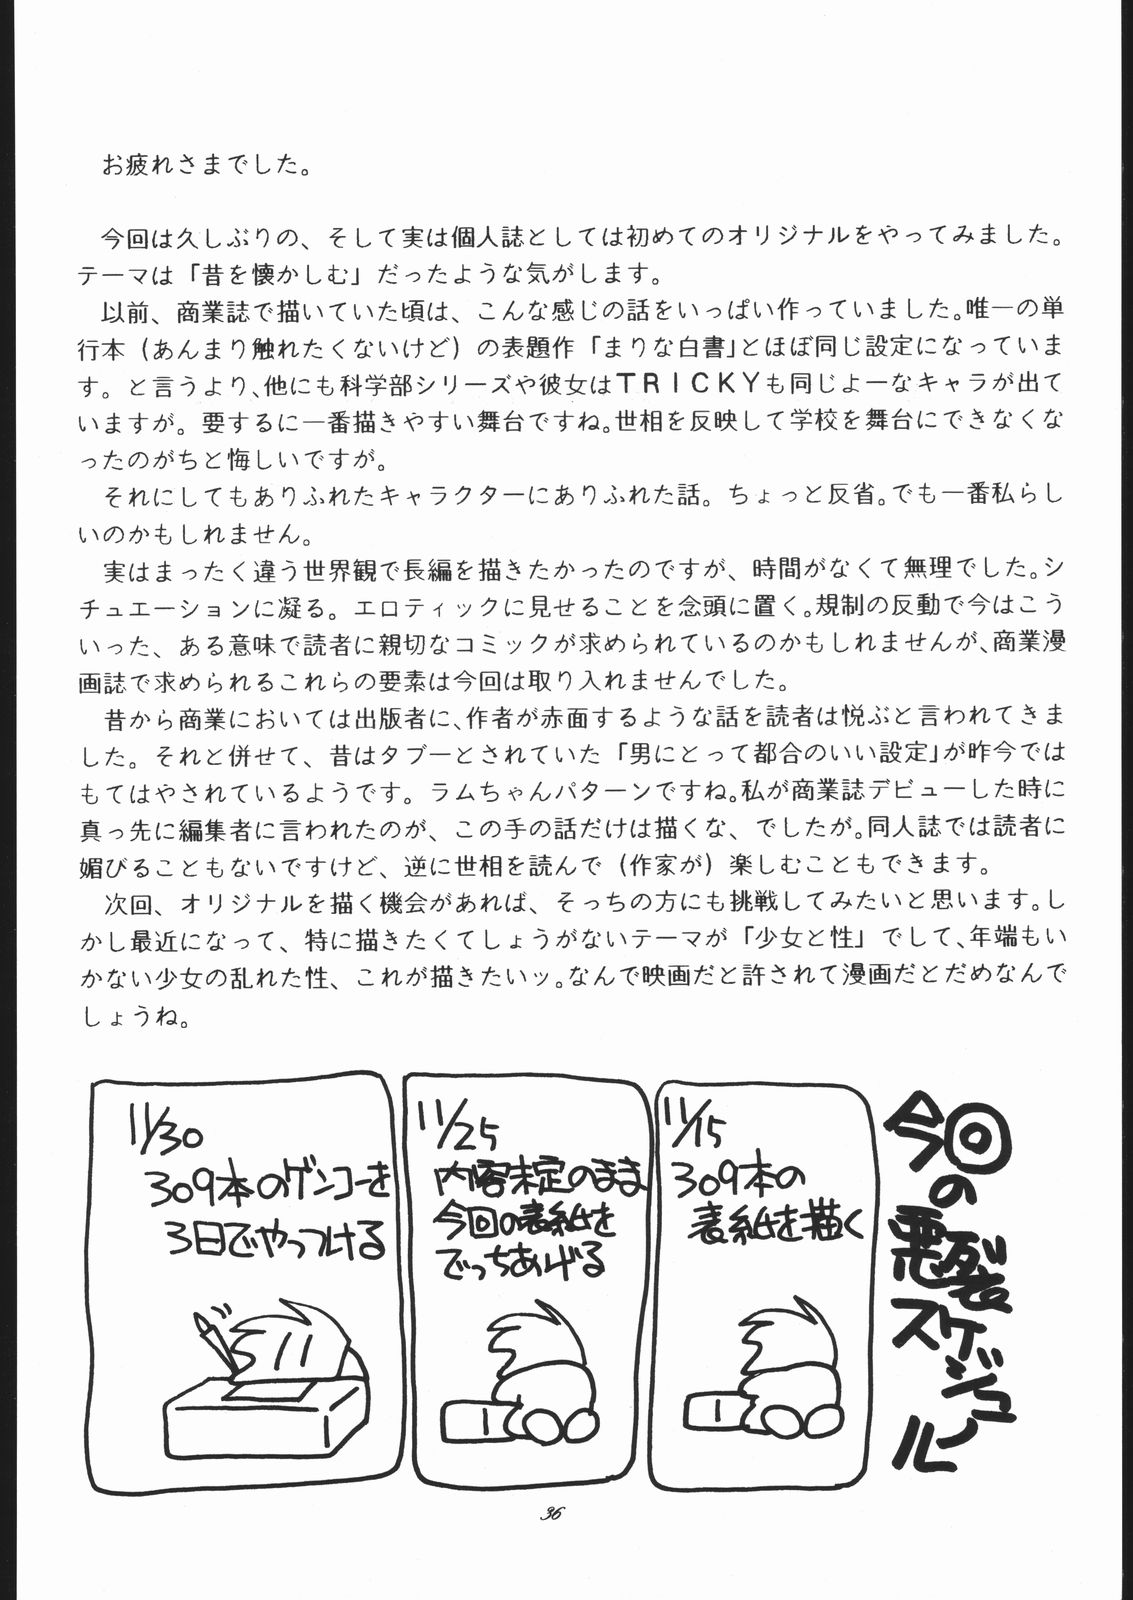 お疲れさまでした。
今回は久しぶりの、そして実は個人誌としては初めてのオリジナルをやってみました。
テーマは「昔を懐かしむ」だったような気がします。
以前、商業誌で描いていた頃は、こんな感じの話をいっぱい作っていました。唯一の単
行本（あんまり触れたくないけど）の表題作「まりな白書」とほぼ同じ設定になっていま
す。と言うより、他にも科学部シリーズや彼女はTRICKYも同じよーなキャラが出て
いますが。要するに一番描きやすい舞台ですね。世相を反映して学校を舞台にできなくな
ったのがちと悔しいですが。
それにしてもありふれたキャラクターにありふれた話。ちょっと反省。でも一番私らし
いのかもしれません。
実はまったく違う世界観で長編を描きたかったのですが、時間がなくて無理でした。シ
チュエーションに凝る。エロティックに見せることを念頭に置く。規制の反動で今はこう
いった、ある意味で読者に親切なコミックが求められているのかもしれませんが、商業漫
画誌で求められるこれらの要素は今回は取り入れませんでした。
昔から商業においては出版者に、作者が赤面するような話を読者は悦ぶと言われてきま
した。それと併せて、昔はタブーとされていた「男にとって都合のいい設定」が昨今では
もてはやされているようです。ラムちゃんパターンですね。私が商業誌デビューした時に
真っ先に編集者に言われたのが、この手の話だけは描くな、でしたが。同人誌では読者に
媚びることもないですけど、逆に世相を読んで（作家が）楽しむこともできます。
次回、オリジナルを描く機会があれば、そっちの方にも挑戦してみたいと思います。し
かし最近になって、特に描きたくてしょうがないテーマが「少女と性」でして、年端もい
かない少女の乱れた性、これが描きたいッ。なんで映画だと許されて漫画だとだめなんで
しょうね。
今回の悪裂スケジュール
11/15
309本の
表紙を描く
11/25
内容未定のまま
今回の表紙を
でっちあげる
11/30
309本のゲンコーを
3日でやっつける
36